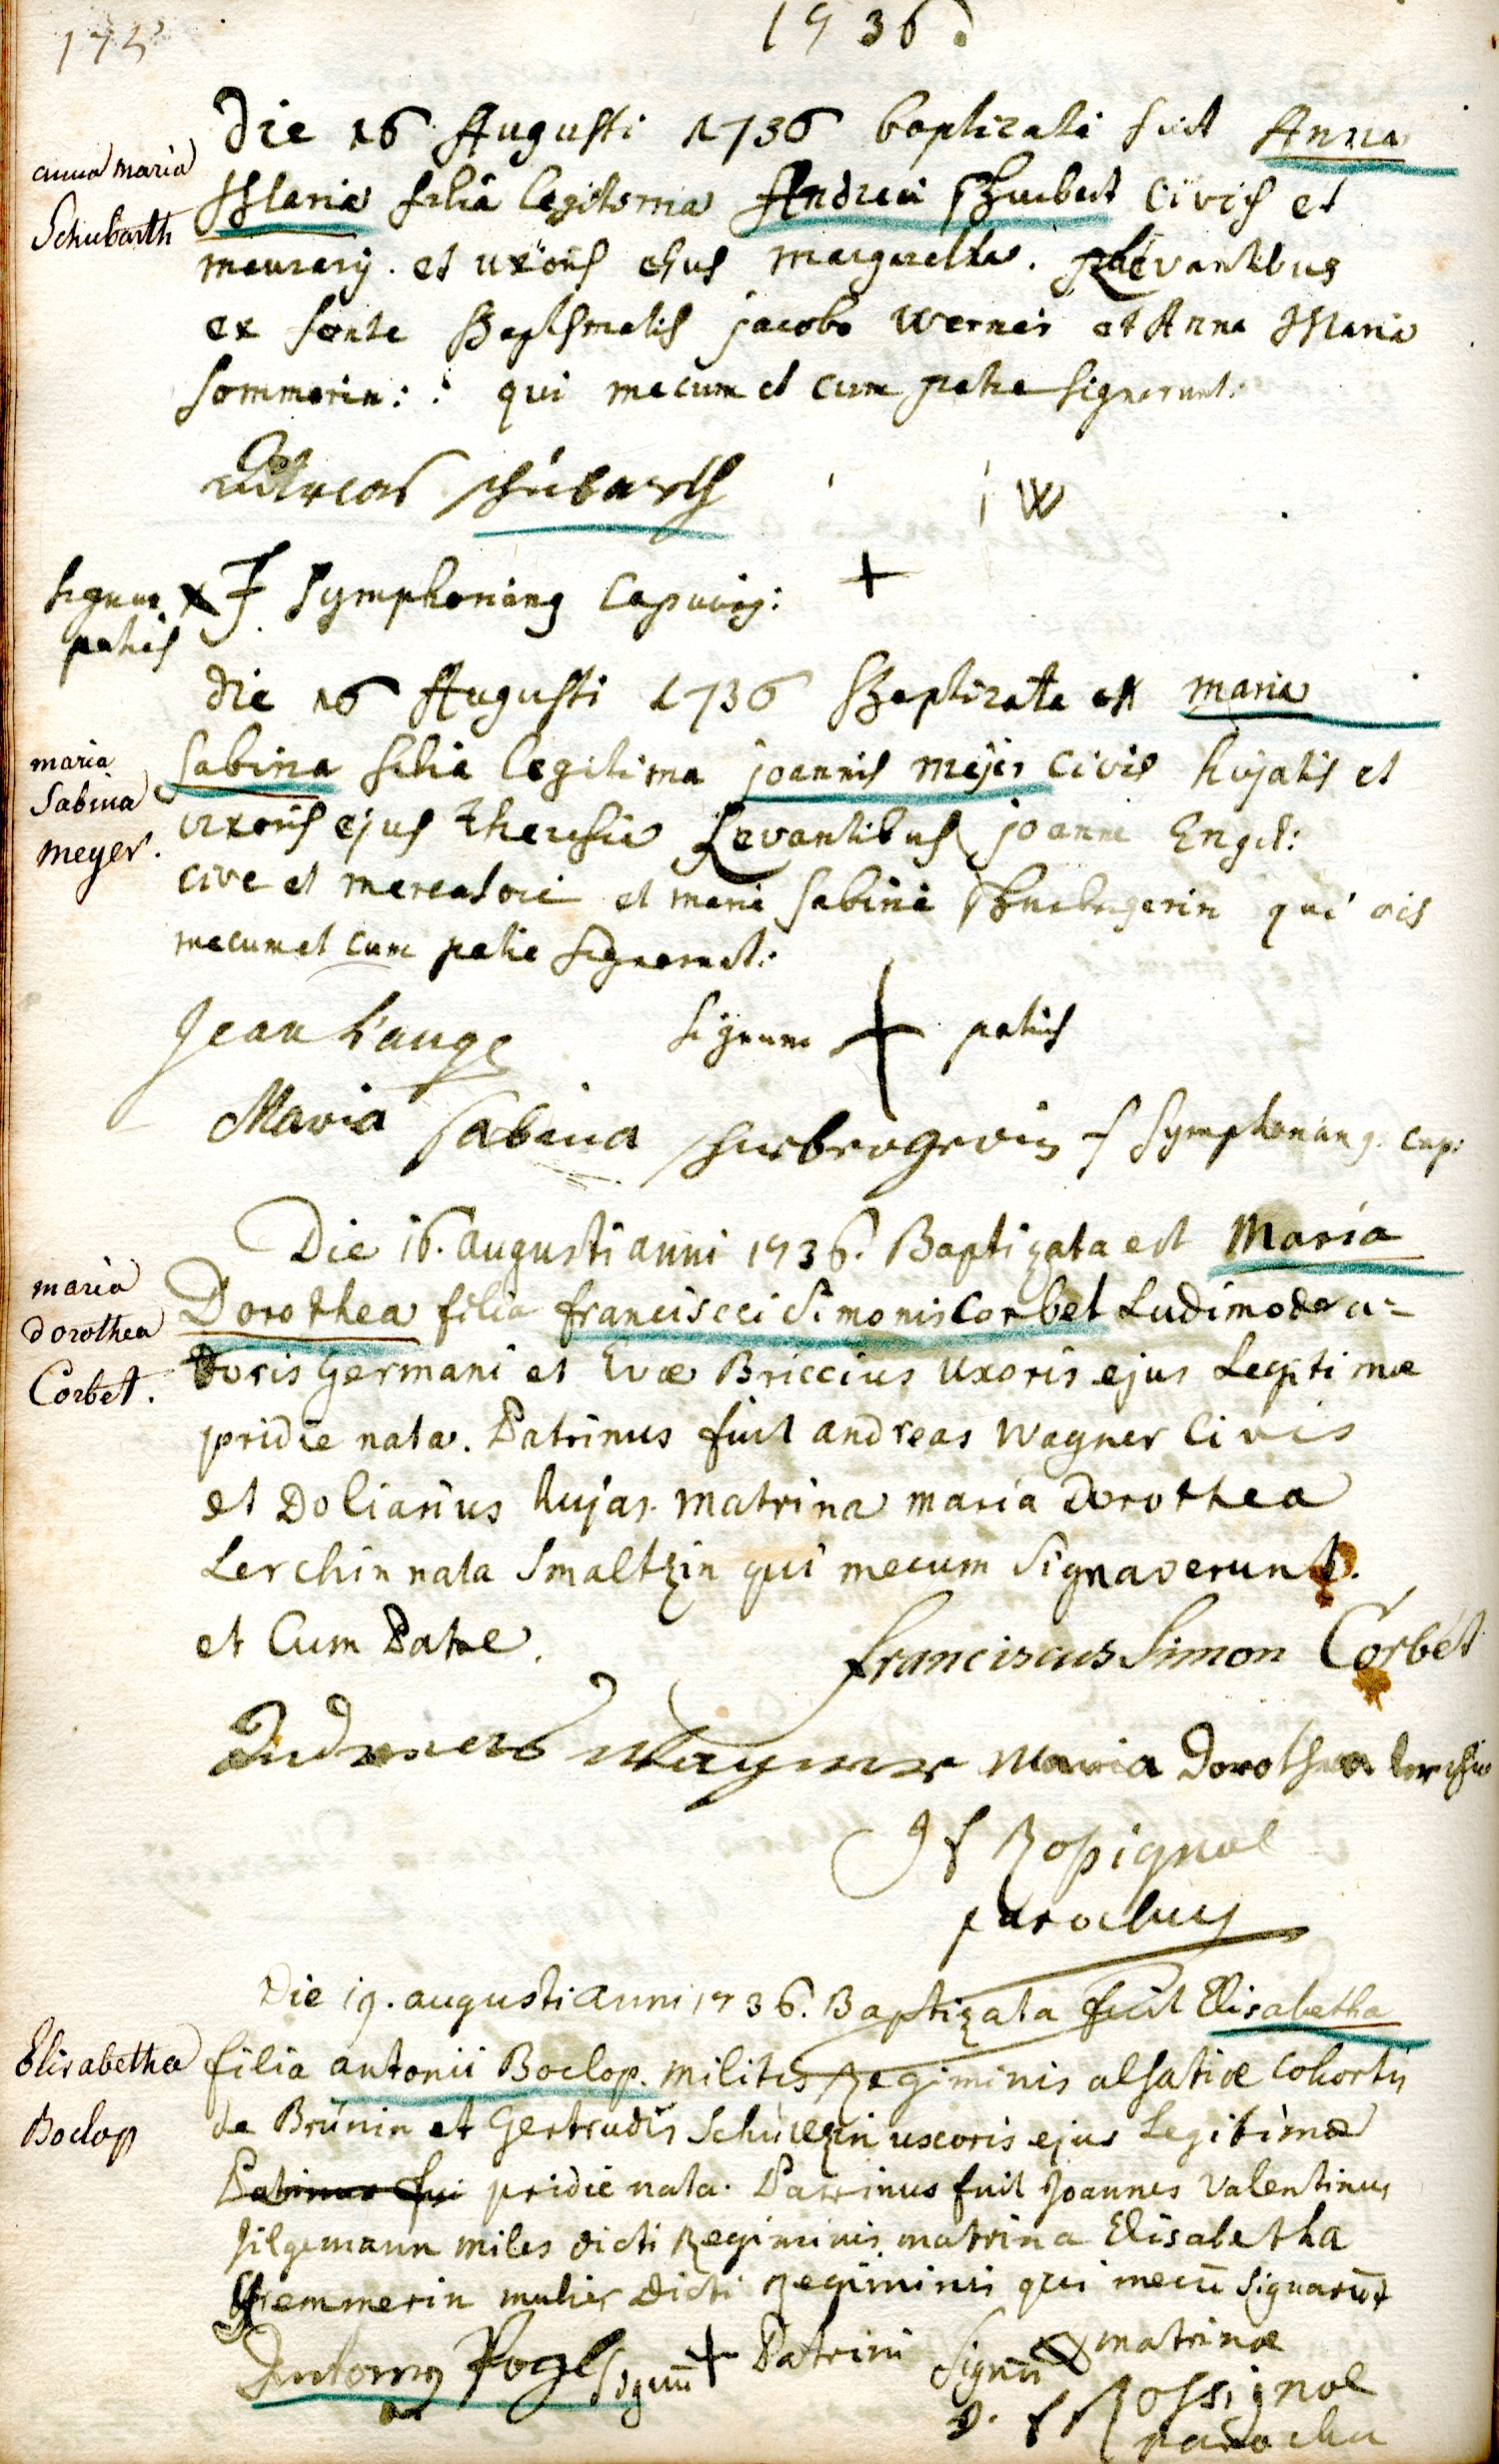 175
1736.
Die 16 Augusti 1736 baptizata fuit Anna
anna maria
Schubarth
Maria filia legitima Andreae Schuebert civis et
murarij. et uxoris ejus margaretha. Levantibus
ex fonte Baptismatis jacobo Werner et Anna Maria
Sommerin: qui mecum et cum patre signarunt:
Andreas schubarth
i W
signum patris
F Symphorianus Capucing: +
die 16 Augusti 1736 Baptizata est maria
maria
Sabina
meyer.
Sabina filia legitima joannis mejer civis hujatis et
uxoris ejus theresiae Levantibus joanne Engel:
cive et mercatore et maria sabina qui
mecum et cum patre signarunt:
Jean L'ange signum + patris
Maria sabina F Symphorianus. cap:
Die 16. augusti anni 1736. Baptizata est Maria
maria
dorothea
Corbet.
Dorothea filia francisci Simonis Corbet Ludimodera=
toris Germani et Evæ Briccius Uxoris ejus Legitimæ
pridie nata. Patrinus fuit andreas Wagner Civis
et Doliarius hujas. matrina maria Dorothea
Lerchin nata Smaltzin qui mecum Signaverunt.
et Cum Patre.
franciscus Simon Corbet
Andreas Wagner Maria Dorothea Lerchin
J f Rossignol
parochus
Die 19. augusti anni 1736. Baptizata fuit Elisabetha
Elisabetha
Boclop
filia antonii Boclop. militis Regiminis alsatiæ Cohortis
de Brunin et Gertrudis uxoris ejus Legitimæ
Patrinus fui pridie nata. Patrinus fuit Joannes Valentinus
hilgemann miles dicti Regiminis matrina Elisabetha
mulier dicti Regiminis qui mecū signarūt
Antony Signū + Patrini Signū matrinæ
J. f Rossignol
parochu